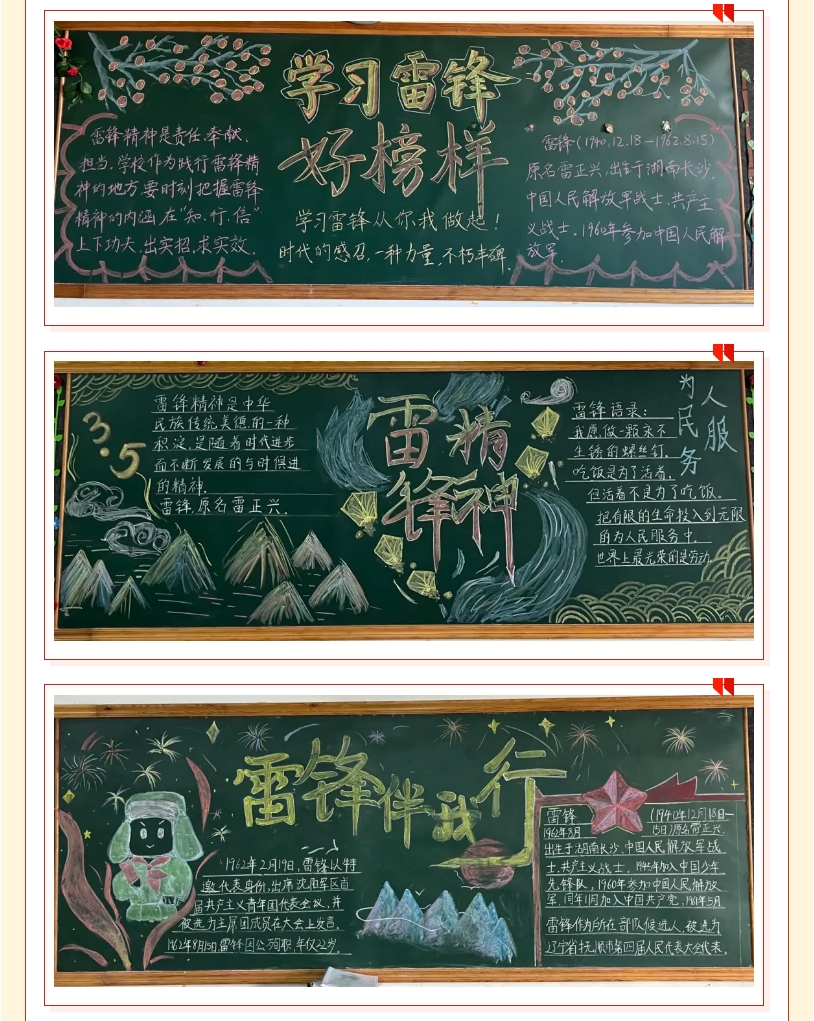 学习雷锋
好榜样
雷锋精神是责任、奉献、
担当。学校作为践行雷锋精
神的地方要时刻把握雷锋
精神的内涵,在“知、行、信”
上下功夫,出实招,求实效.
学习雷锋从你我做起!
时代的感召,一种力量,不朽丰碑.
雷锋(1940.12.18—1962.8.15)
原名雷正兴,出生于湖南长沙,
中国人民解放军战士、共产主
义战士。1960年参加中国人民解
放军.
3.5
雷锋精神是中华
民族传统美德的一种
积淀,是随着时代进步
而不断发展的与时俱进
的精神.
雷锋,原名雷正兴.
雷锋
精神
为人民服务
雷锋语录:
我愿做一颗永不
生锈的螺丝钉.
吃饭是为了活着,
但活着不是为了吃饭。
把有限的生命投入到无限
的为人民服务中.
世界上最光荣的是劳动.
雷锋伴我行
1962年2月19日,雷锋以特
邀代表身份,出席沈阳军区首
届共产主义青年团代表会议,并
被选为主席团成员在大会上发言.
1962年8月15日雷锋因公殉职,年仅22岁.
雷锋 (1940年12月18日—
1962年8月 15日)原名雷正兴,
出生于湖南长沙,中国人民解放军战
士,共产主义战士,
加入中国少年
先锋队,1960年参加中国人民解放
军,同年11月加入中国共产党,1961年5月
雷锋作为所在部队候选人,被选为
辽宁省抚顺市第四届人民代表大会代表.